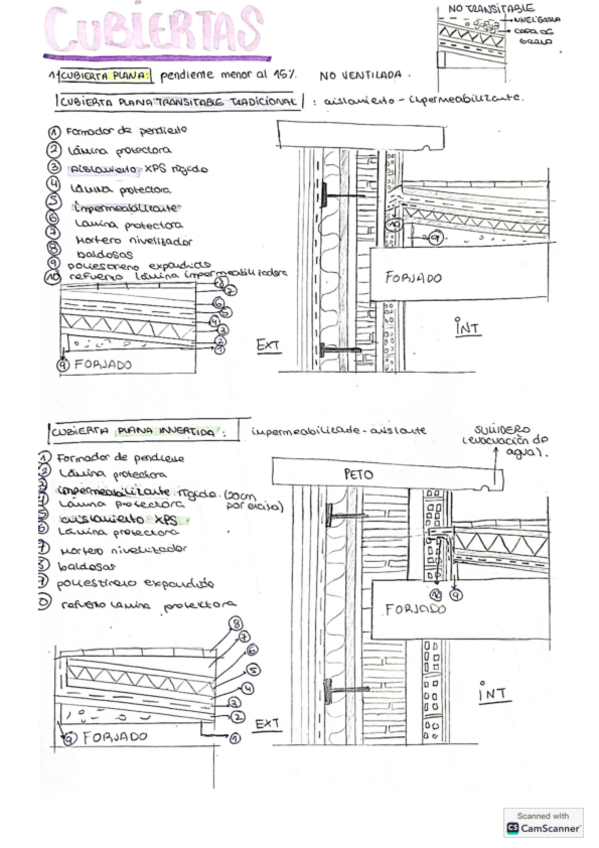 CUBIERTAS
NO TRANSITABLE
CAPA DE
GRAVA
1) CUBIERTA PLANA: pendiente menor al 15%. NO VENTILADA.
CUBIERTA PLANA TRANSITABLE TRADICIONAL : aislamiento - impermeabilizante.
① Formador de pendiente
② Lámina protectora
③ Aislamiento XPS rígido
④ Lámina protectora
⑤ impermeabilizante
⑥ Lamina protectora
⑦ Mortero nivelizador
⑧ baldosas
⑨ poliestireno expandido
⑩ refuerzo lámina impermeabilizadora
⑦
⑥
⑤
④
③
②
①
⑨ FORJADO
EXT
⑩
⑨
FORJADO
INT
CUBIERTA PLANA INVERTIDA: impermeabilizante - aislante
SUMIDERO
(evacuación de
agua).
① Formador de pendiente
② Lámina protectora
impermeabilizante rígido (20cm
Lámina protectora por encima)
⑤ aislamiento XPS.
⑥ Lámina protectora
Mortero nivelizador
baldosas
poliestireno expandido
refuerzo lamina protectora
PETO
FORJADO
⑩ ⑨
INT
⑧
⑦
⑥
⑤
④
③
②
①
⑨ FORJADO
EXT
Scanned with
CS CamScanner